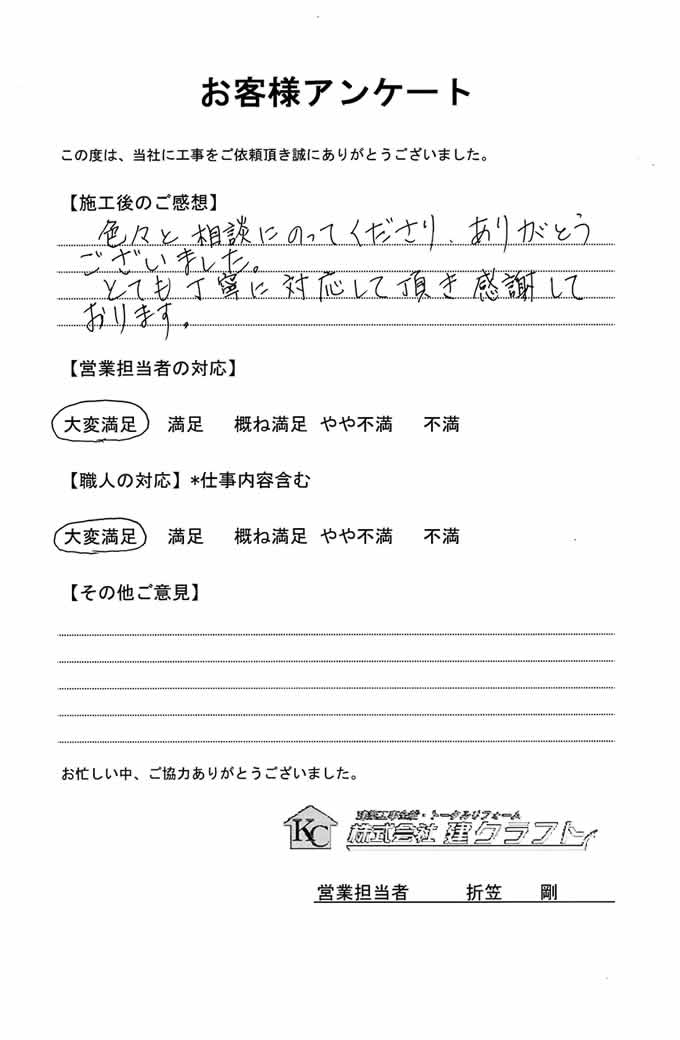 お客様アンケート
この度は、当社に工事をご依頼頂き誠にありがとうございました。
【施工後のご感想】
色々と相談にのってくださり、ありがとう
ございました。
とても丁寧に対応して頂き感謝して
おります。
【営業担当者の対応】
大変満足 満足 概ね満足 やや不満 不満
【職人の対応】*仕事内容含む
大変満足 満足 概ね満足 やや不満 不満
【その他ご意見】
お忙しい中、ご協力ありがとうございました。
建築工事全般・トータルリフォーム
KC 株式会社 建クラフト
営業担当者 折笠 剛